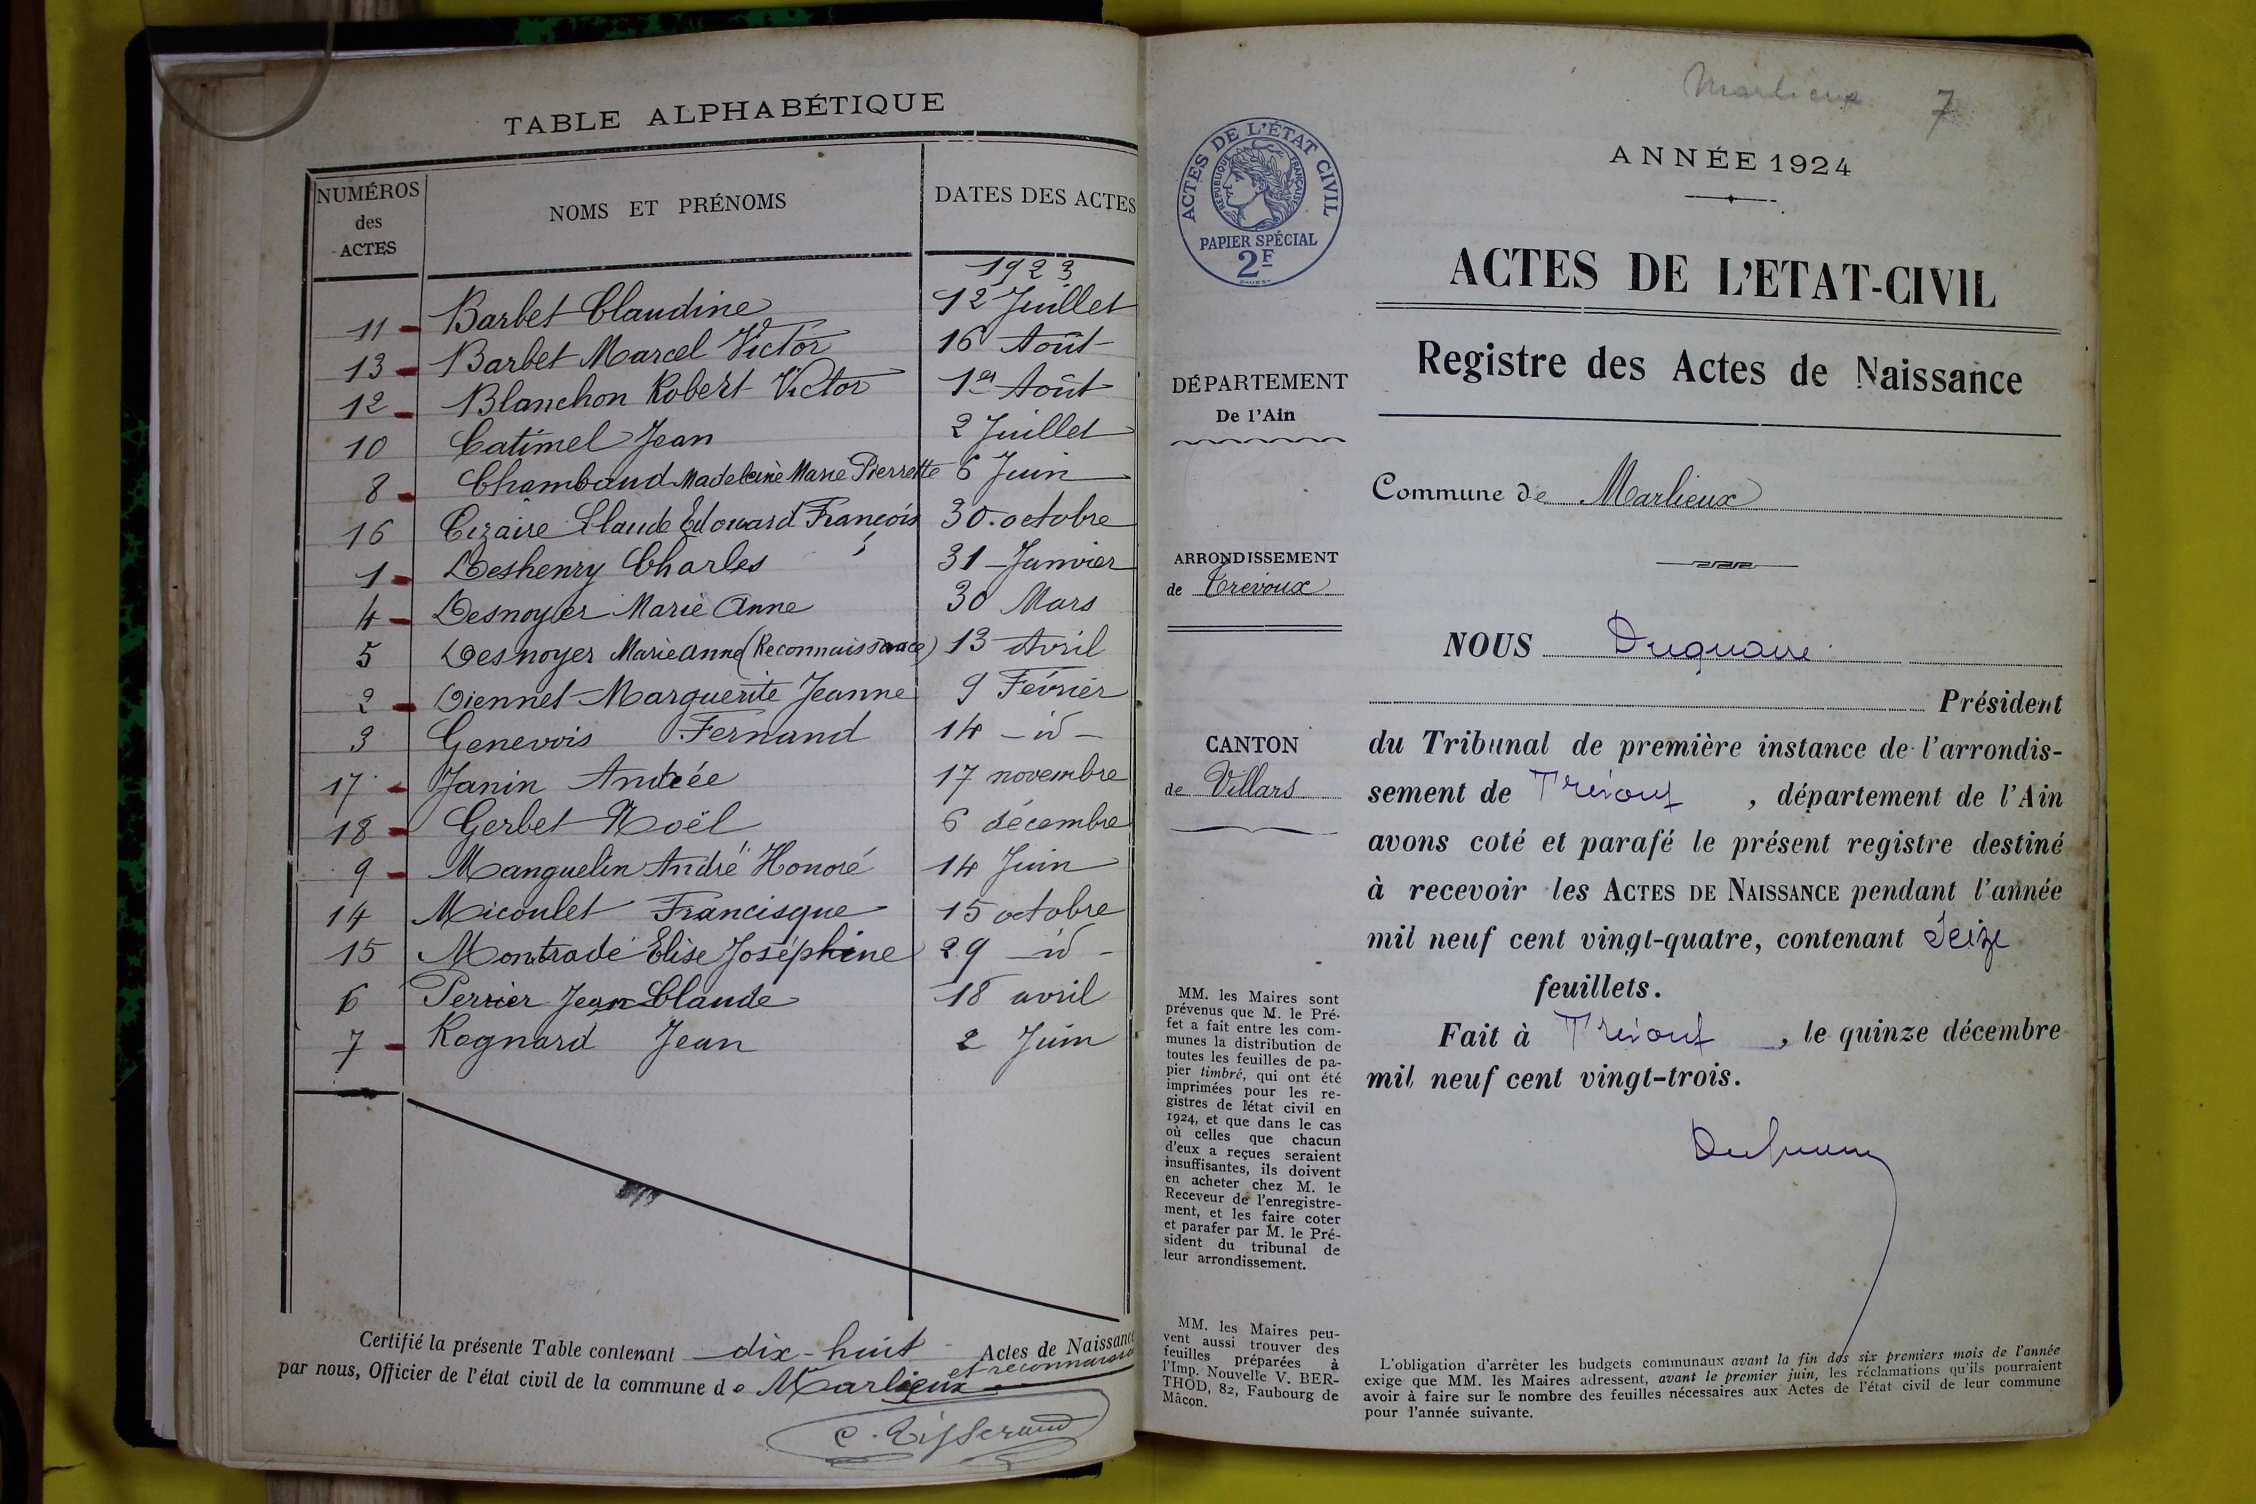 TABLE ALPHABÉTIQUE
NUMÉROS des ACTES
NOMS ET PRÉNOMS
DATES DES ACTES
1923
11 - Barbet Claudine 12 Juillet
13 - Barbet Marcel Victor 16 Août
12 - Blanchon Robert Victor 1er Août
10 Catimel Jean 2 Juillet
8 - Chambaud Madeleine Marie Pierrette 6 Juin
16 Cizaire Claude Edouard François 30 octobre
1 - Deshenry Charles 31 Janvier
4 - Desnoyer Marie Anne 30 Mars
5 Desnoyer Marie Anne (Reconnaissance) 13 Avril
2 - Diennet Marguerite Jeanne 9 Février
3 Genevois Fernand 14 - id -
17 - Janin Andrée 17 novembre
18 - Gerbet Noël 6 décembre
9 - Manguelin André Honoré 14 Juin
14 Micoulet Francisque 15 octobre
15 Montrade Elise Joséphine 29 - id -
6 Perrier Jean Claude 18 avril
7 - Rognard Jean 2 Juin
Certifié la présente Table contenant dix-huit Actes de Naissance
et reconnaissance
par nous, Officier de l'état civil de la commune de Marlieux
C. Tisserand
Marlieux 7
ACTES DE L'ÉTAT CIVIL
RÉPUBLIQUE FRANÇAISE
PAPIER SPÉCIAL
2F
ANNÉE 1924
ACTES DE L'ETAT-CIVIL
Registre des Actes de Naissance
DÉPARTEMENT
De l'Ain
Commune de Marlieux
ARRONDISSEMENT
de Trévoux
CANTON
de Villars
NOUS Duquaire
Président
du Tribunal de première instance de l'arrondis-
sement de Trévoux, département de l'Ain
avons coté et parafé le présent registre destiné
à recevoir les ACTES DE NAISSANCE pendant l'année
mil neuf cent vingt-quatre, contenant Seize
feuillets.
Fait à Trévoux, le quinze décembre
mil neuf cent vingt-trois.
MM. les Maires sont
prévenus que M. le Pré-
fet a fait entre les com-
munes la distribution de
toutes les feuilles de pa-
pier timbré, qui ont été
imprimées pour les re-
gistres de l'état civil en
1924, et que dans le cas
où celles que chacun
d'eux a reçues seraient
insuffisantes, ils doivent
en acheter chez M. le
Receveur de l'enregistre-
ment, et les faire coter
et parafer par M. le Pré-
sident du tribunal de
leur arrondissement.
MM. les Maires peu-
vent aussi trouver des
feuilles préparées à
l'Imp. Nouvelle V. BER-
THOD, 82, Faubourg de
Mâcon.
L'obligation d'arrêter les budgets communaux avant la fin des six premiers mois de l'année
exige que MM. les Maires adressent, avant le premier juin, les réclamations qu'ils pourraient
avoir à faire sur le nombre des feuilles nécessaires aux Actes de l'état civil de leur commune
pour l'année suivante.